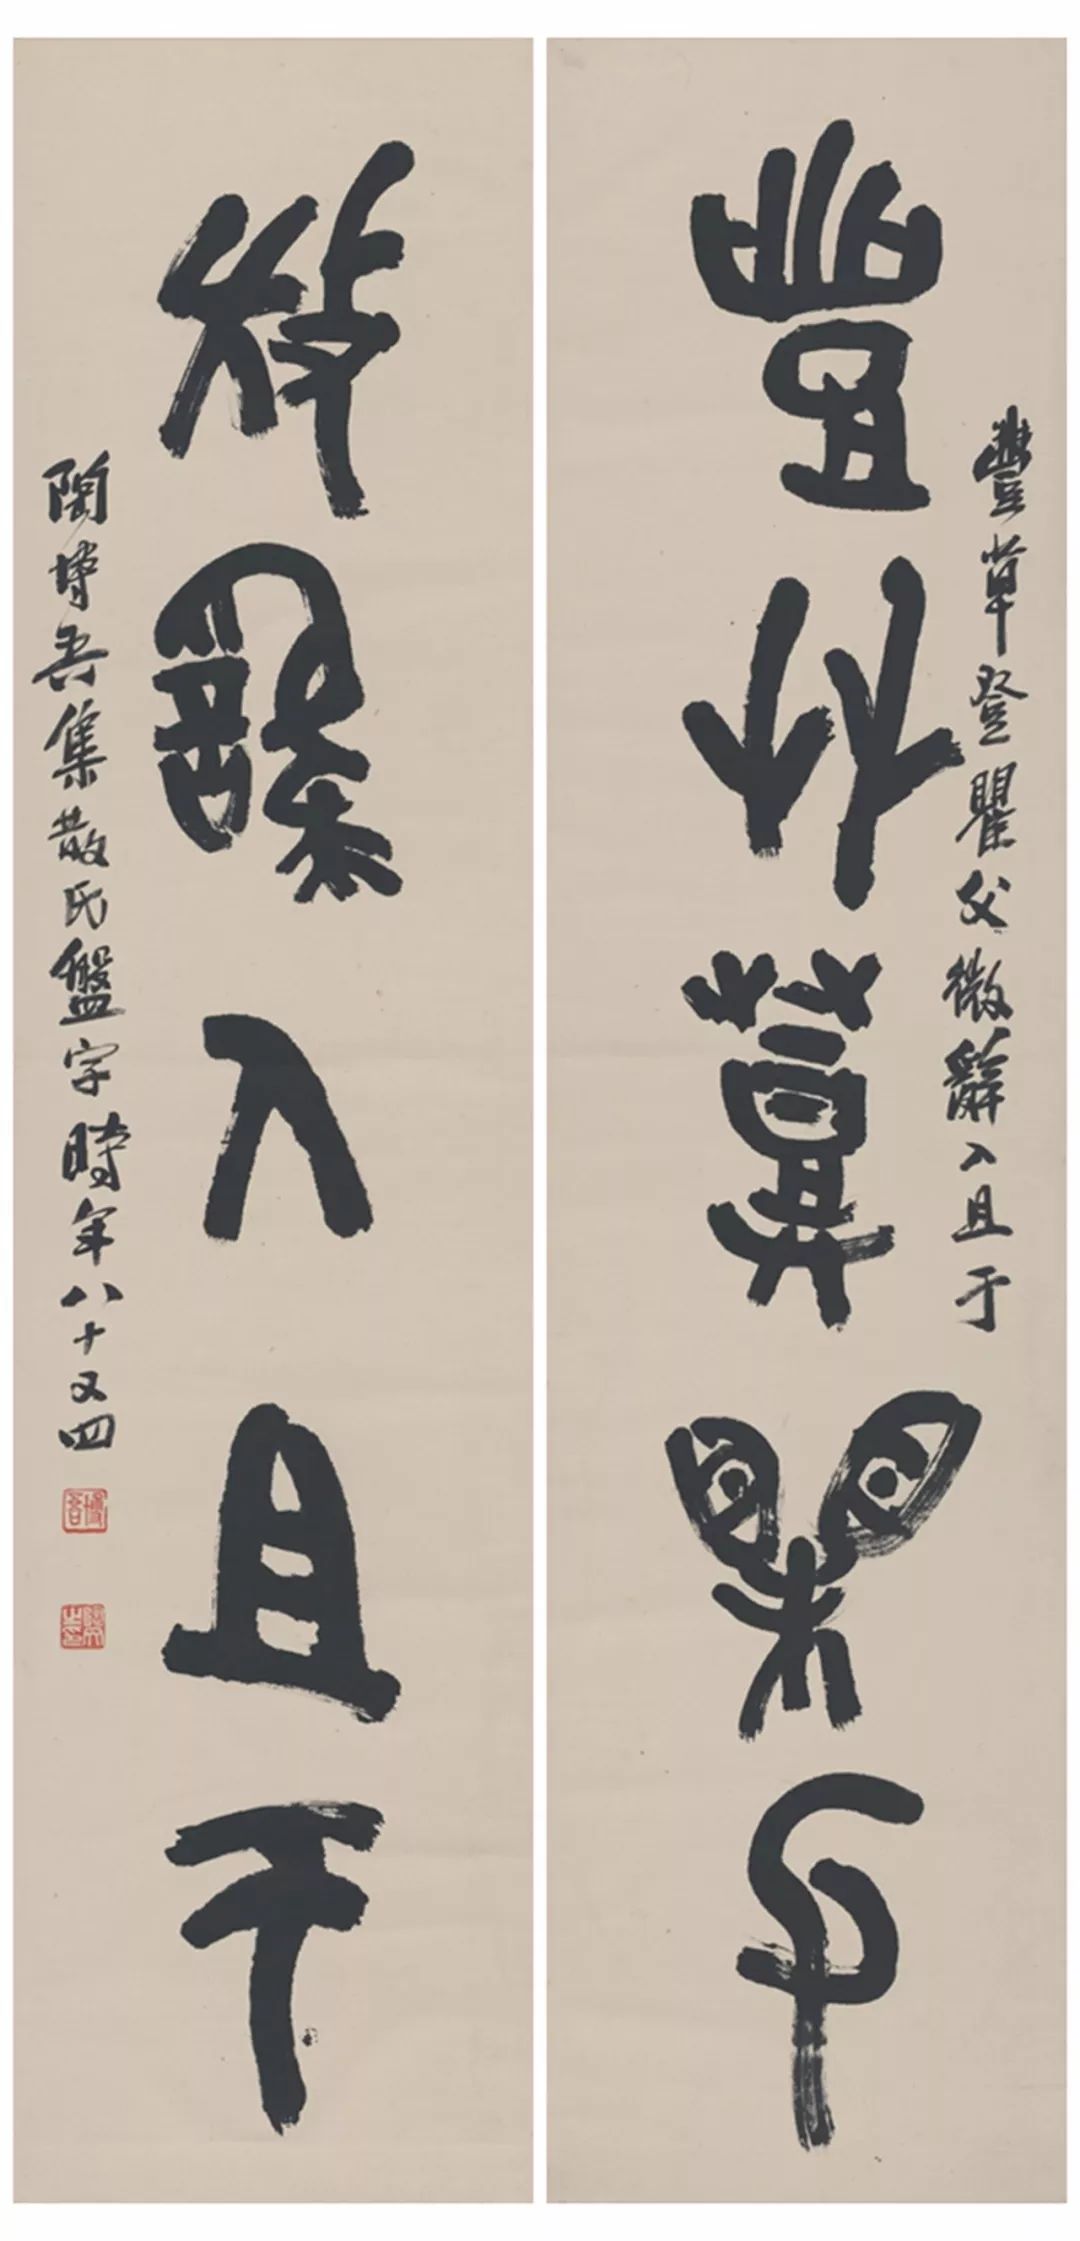 豐草登瞿父微辭入且于
豐艸登瞿父
微辭入且于
陶博吾集散氏盤字時年八十又四
博吾